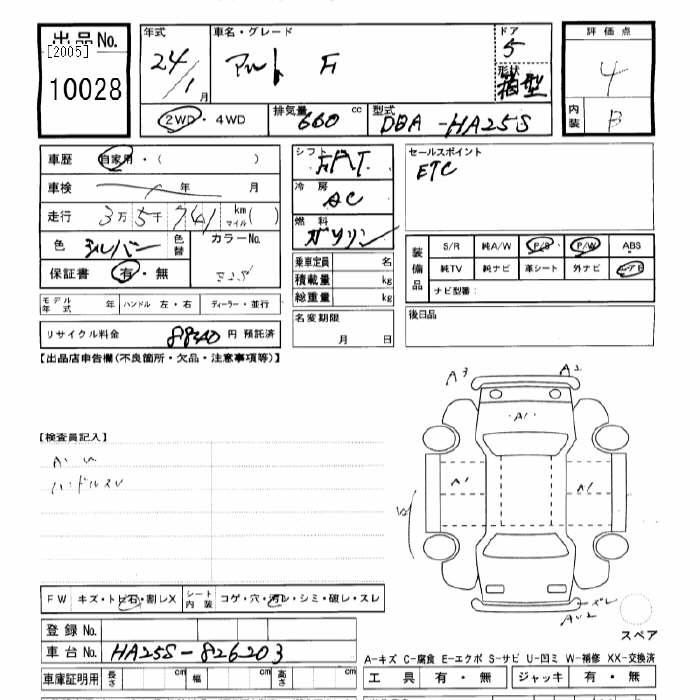 出品No.
[2005]
10028
年式
24/1月
車名・グレード
アルト F
ドア
5
形状
箱型
評価点
4
内装
B
2WD・4WD
排気量 660 cc
型式 DBA-HA25S
車歴 自家用・( )
車検 年 月
走行 3万5千741 km マイル ( )
色 シルバー 色替 カラーNo.
保証書 有・無
モデル年式 年 ハンドル 左・右 ディーラー・並行
リサイクル料金 8840 円 預託済
シフト FAT
冷房 AC
燃料 ガソリン
乗車定員 名
積載量 kg
総重量 kg
名変期限
月 日
セールスポイント
ETC
装備品
S/R 純A/W P/S P/W ABS
純TV 純ナビ 革シート 外ナビ エアB
ナビ型番:
後日品
【出品店申告欄(不良箇所・欠品・注意事項等)】
【検査員記入】
ハンドルスレ
A3 A2
A1
A1 A1
W
ズレ
AU2
スペア
FW キズ・トビ石・割レX シート内装 コゲ・穴・汚レ・シミ・破レ・スレ
登録No.
車台No. HA25S-826203
車庫証明用 長さ cm 幅 cm 高さ cm
A-キズ C-腐食 E-エクボ S-サビ U-凹ミ W-補修 XX-交換済
工具 有・無 ジャッキ 有・無